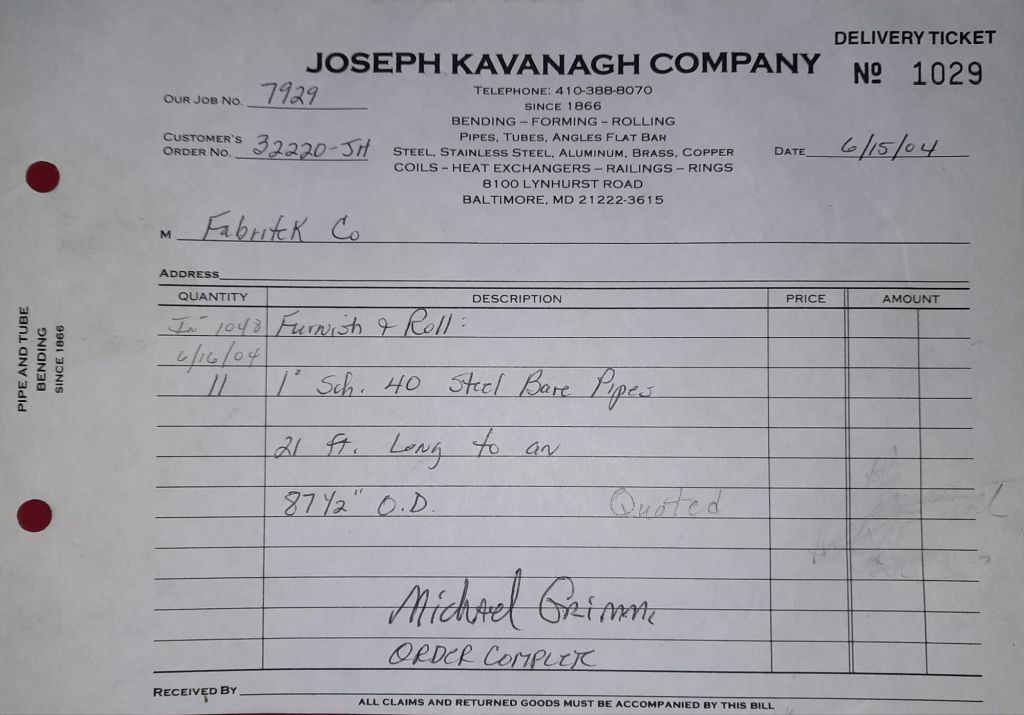 DELIVERY TICKET
JOSEPH KAVANAGH COMPANY
Nº 1029
TELEPHONE: 410-388-8070
OUR JOB NO. 7929
SINCE 1866
BENDING – FORMING – ROLLING
PIPES, TUBES, ANGLES FLAT BAR
CUSTOMER'S
ORDER NO. 32220-JH
STEEL, STAINLESS STEEL, ALUMINUM, BRASS, COPPER
DATE 6/15/04
COILS – HEAT EXCHANGERS – RAILINGS – RINGS
8100 LYNHURST ROAD
BALTIMORE, MD 21222-3615
M Fabritek Co
ADDRESS
QUANTITY DESCRIPTION PRICE AMOUNT
In 1043 Furnish & Roll:
6/16/04
11 1" Sch. 40 Steel Bare Pipes
21 ft. Long to an
87 1/2" O.D. Quoted
Michael Grimm
ORDER COMPLETE
RECEIVED BY
ALL CLAIMS AND RETURNED GOODS MUST BE ACCOMPANIED BY THIS BILL
PIPE AND TUBE
BENDING
SINCE 1866